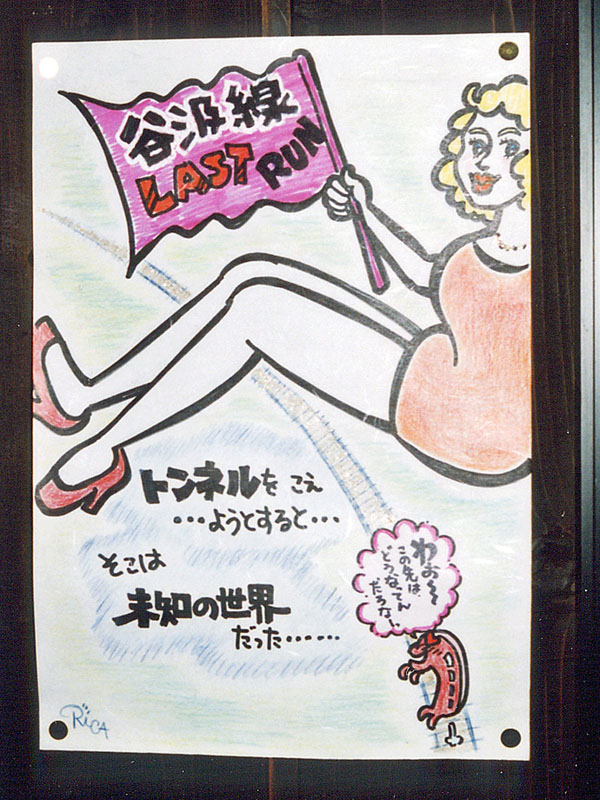 谷汲線
LAST RUN
トンネルをこえ
…ようとすると…
そこは
未知の世界
だった……
わぉ〜〜
この先は、
どうなってん
だろな、
RiCA